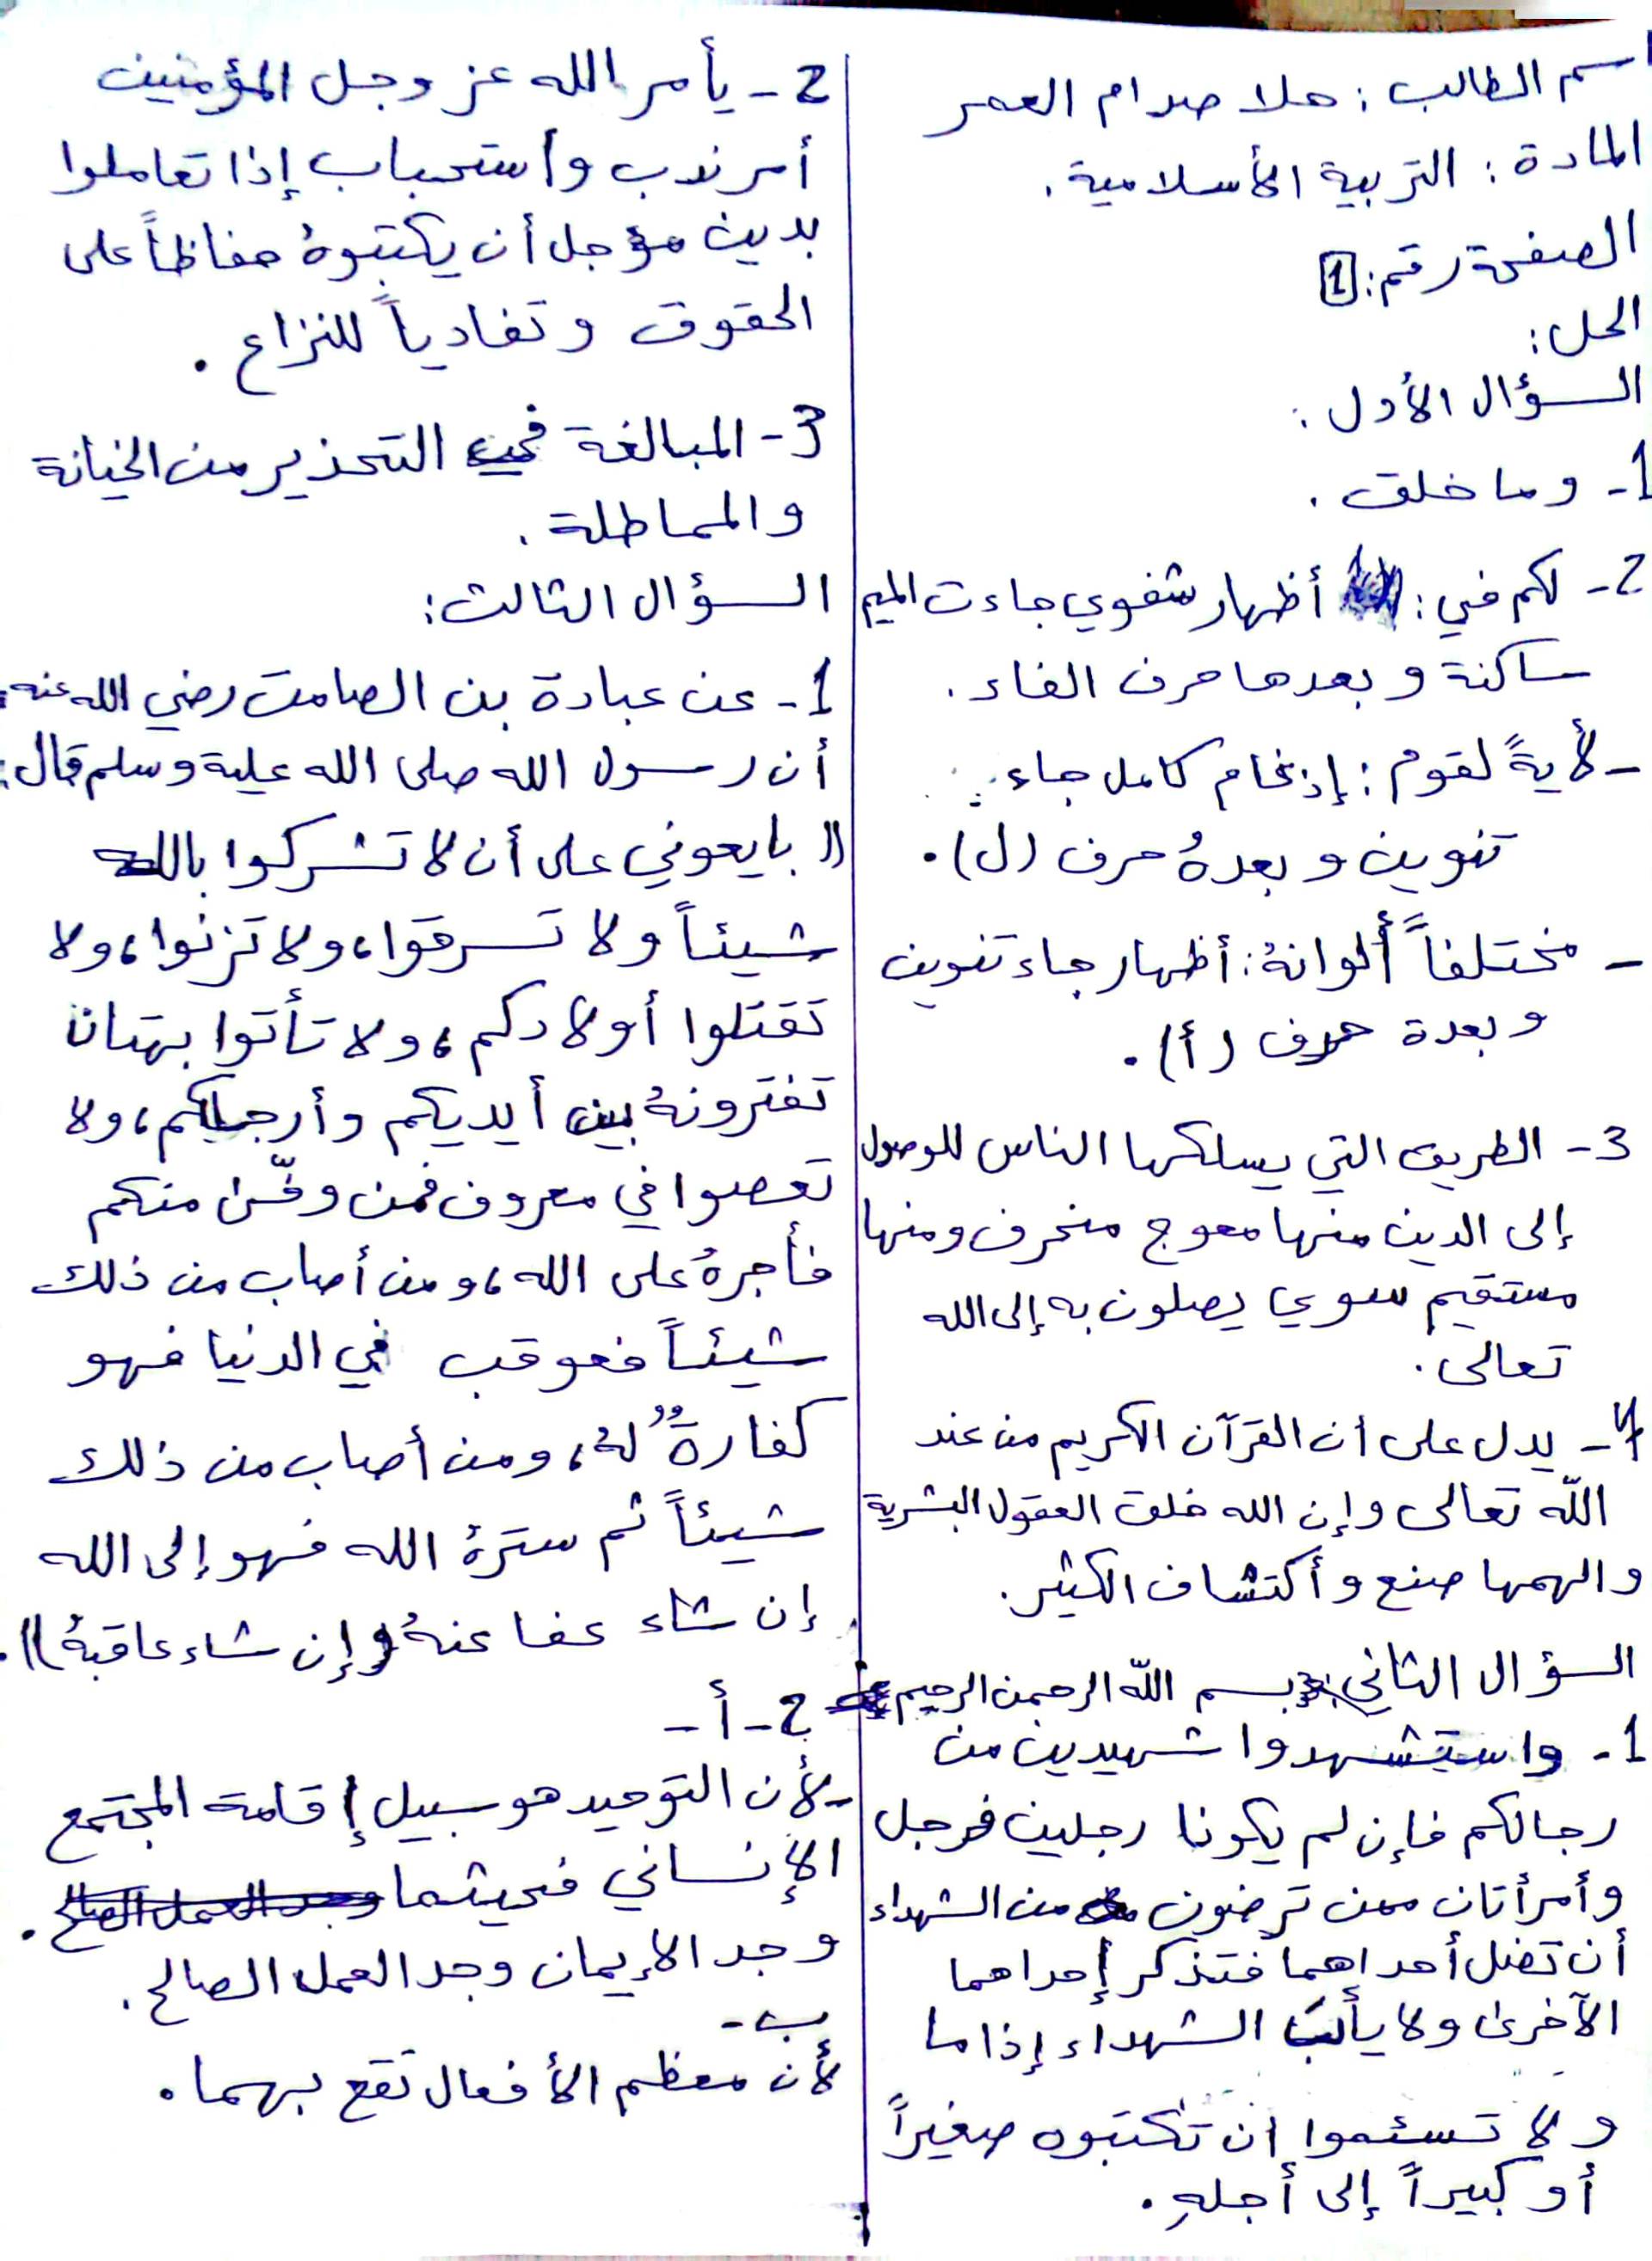 اسم الطالب : حلا صدام العمر
المادة : التربية الأسلامية .
الصفحة رقم : 1
الحل :
السؤال الأول :
1- وما خلق .
2- لكم في : أظهار شفوي جاءت الميم
ساكنة وبعدها حرف الفاء .
- لأيةً لقوم : إدغام كامل جاء
تنوين و بعدهُ حرف (ل) .
- مختلفاً ألوانهُ : أظهار جاء تنوين
وبعدة حرف (أ) .
3- الطريق التي يسلكها الناس للوصول
إلى الدين منها معوج منحرف ومنها
مستقيم سوي يصلون به إلى الله
تعالى .
4- يدل على أن القرآن الكريم من عند
الله تعالى وإن الله خلق العقول البشرية
والهمها صنع وأكتشاف الكثير .
السؤال الثاني : بسم الله الرحمن الرحيم
1- واستشهدوا شهيدين من
رجالكم فإن لم يكونا رجلين فرجل
وأمرأتان ممن ترضون من الشهداء
أن تضل أحداهما فتذكر إحداهما
الآخرى ولا يأب الشهداء إذا ما
ولا تسئموا ان تكتبوه صغيراً
أو كبيراً إلى أجلهِ .
2- يأمر الله عز وجل المؤمنين
أمر ندب واستحباب إذا تعاملوا
بدين مؤجل أن يكتبوهُ حفاظاً على
الحقوق وتفادياً للنزاع .
3- المبالغة في التحذير من الخيانة
والمماطلة .
السؤال الثالث :
1- عن عبادة بن الصامت رضي الله عنه :
أن رسول الله صلى الله علية وسلم قال :
(( بايعوني على أن لا تشركوا بالله
شيئاً ولا تسرقوا ، ولا تزنوا ، ولا
تقتلوا أولادكم ، ولا تأتوا بهتان
تفترونهُ بين أيديكم وأرجلكم ، ولا
تعصوا في معروف فمن وفّى منكم
فأجرهُ على الله ، ومن أصاب من ذلك
شيئاً فعوقب في الدنيا فهو
كفارةٌ لهُ ، ومن أصاب من ذلك
شيئاً ثم سترهُ الله فهو إلى الله
إن شاء عفا عنهُ وإن شاء عاقبهُ )) .
2- أ -
- لأن التوحيد هو سبيل إقامة المجتمع
الإنساني فحيثما
وجد الإيمان وجد العمل الصالح .
ب -
لأن معظم الأفعال تقع بهما .